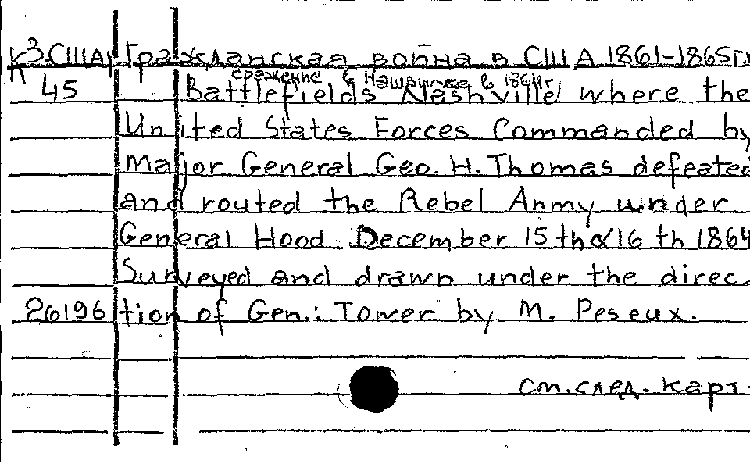 К³.США Гражданская война в США 1861-1865гг
сражение в Нашвилле в 1864г
45 Battlefields Nashville where the
United States Forces Commanded by
Major General Geo. H. Thomas defeated
and routed the Rebel Anmy under
General Hood December 15 th & 16 th 1864
Surveyed and drawn under the direc-
26196 tion of Gen.: Tower by M. Peseux.
см. след. карт.